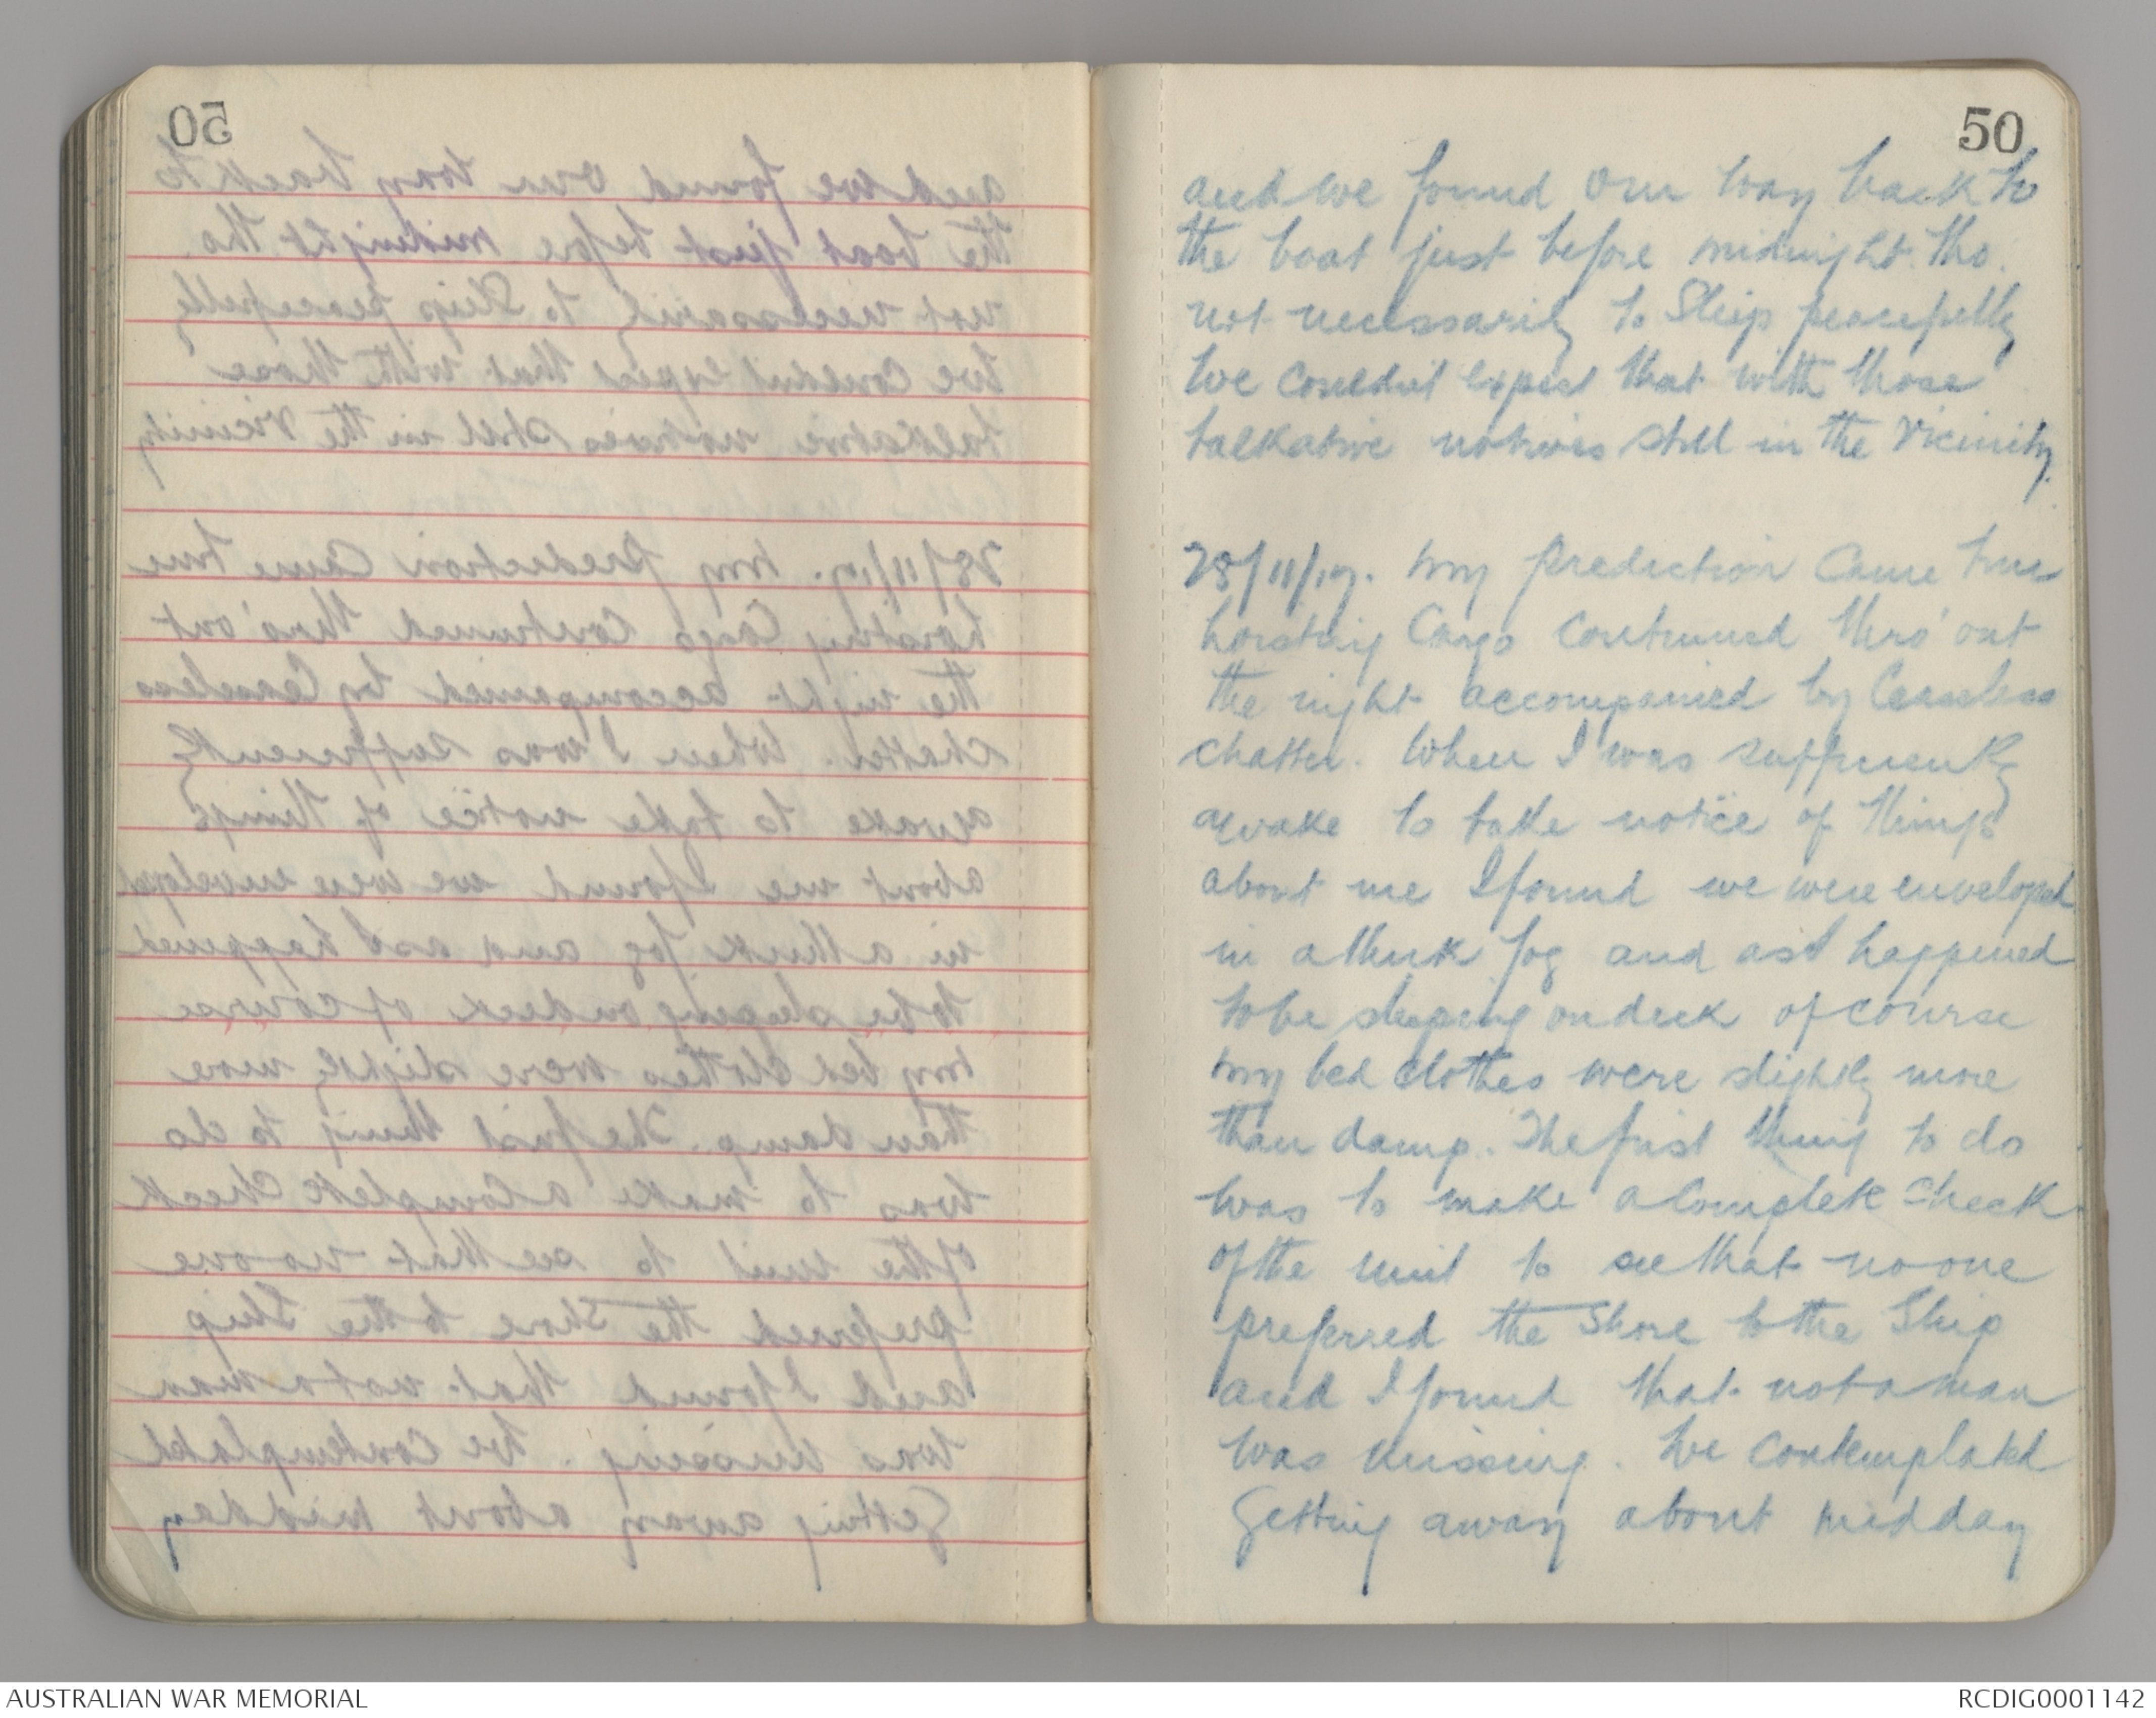 50
and we found our way back to
the boat just before midnight tho.
not necessarily to Sleep peacefully
We couldn't expect that with those
talkative natives still in the vicinity.
28/11/17. My prediction Came true
hoisting Cargo Continued thro' out
the night accompanied by Ceaseless
chatter. When I was sufficiently
awake to take notice of things
about me I found we were enveloped
in a thick fog and as I happened
to be sleeping on deck of course
my bed clothes were slightly more
than damp. The first thing to do
was to make a Complete Check
of the unit to see that no one
preferred the Shore to the Ship
and I found that not a man
was missing. We Contemplated
Getting away about midday
AUSTRALIAN WAR MEMORIAL
RCDIG0001142